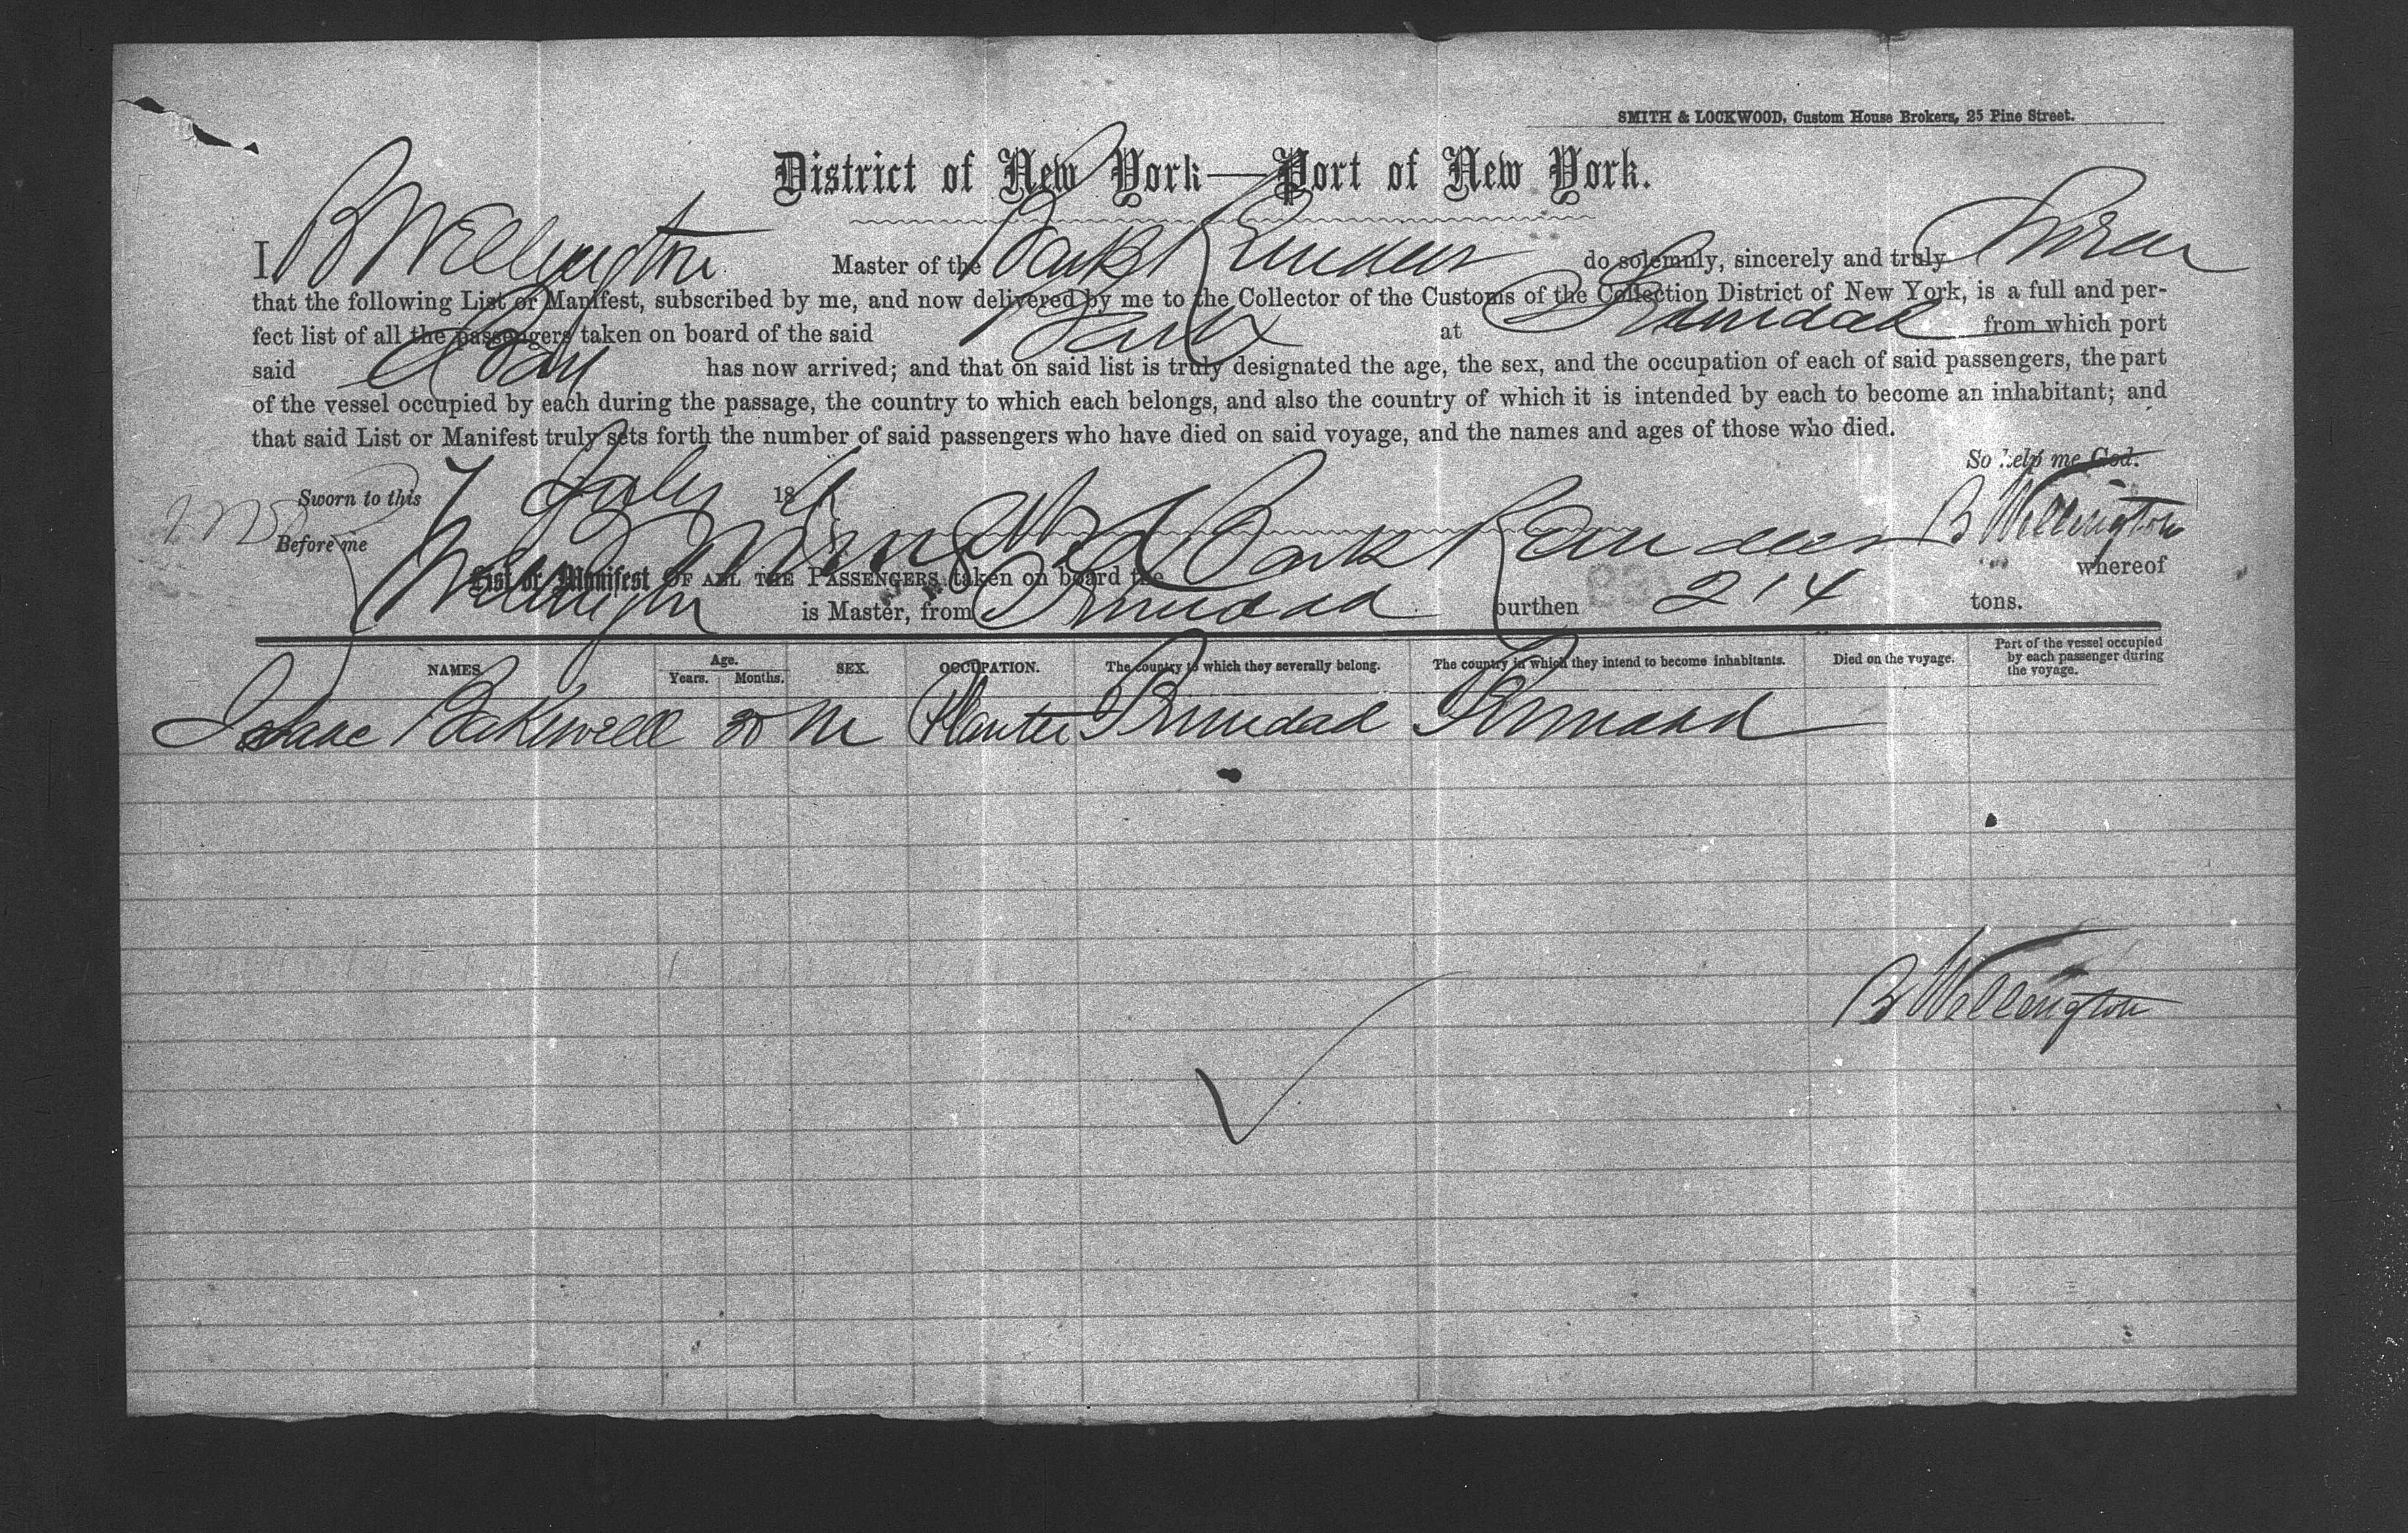 SMITH & LOCKWOOD, Custom House Brokers, 25 Pine Street.
District of New York—Port of New York.
I B Wellington Master of the Bark do solemnly, sincerely and truly Swear
that the following List or Manifest, subscribed by me, and now delivered by me to the Collector of the Customs of the Collection District of New York, is a full and per-
fect list of all the passengers taken on board of the said Bark at Trinidad from which port
said has now arrived; and that on said list is truly designated the age, the sex, and the occupation of each of said passengers, the part
of the vessel occupied by each during the passage, the country to which each belongs, and also the country of which it is intended by each to become an inhabitant; and
that said List or Manifest truly sets forth the number of said passengers who have died on said voyage, and the names and ages of those who died.
So help me God.
Sworn to this 7 July 18
B Wellington
Before me
List or Manifest OF ALL THE PASSENGERS taken on board the Bark whereof
Wellington is Master, from Trinidad burthen 214 tons.
NAMES. Age. Years. Months. SEX. OCCUPATION. The country to which they severally belong. The country in which they intend to become inhabitants. Died on the voyage. Part of the vessel occupied by each passenger during the voyage.
Isaac Bakewell 30 M Planter Trinidad Trinidad
B Wellington